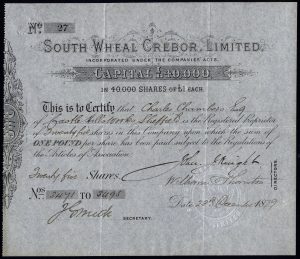 No. 27
SOUTH WHEAL CREBOR, LIMITED.
INCORPORATED UNDER THE COMPANIES ACTS.
CAPITAL £40,000
IN 40,000 SHARES OF £1 EACH.
This is to Certify that Charles Chambers Esq
of Castle Hill Works Sheffield is the Registered Proprietor
of Twenty five shares in this Company upon which the sum of
ONE POUND per share has been paid subject to the Regulations of
the Articles of Association
John
Twenty five Shares.
William Thornton
DIRECTORS.
Nos 3471 TO 3495
Date 20th December 1879
SECRETARY.